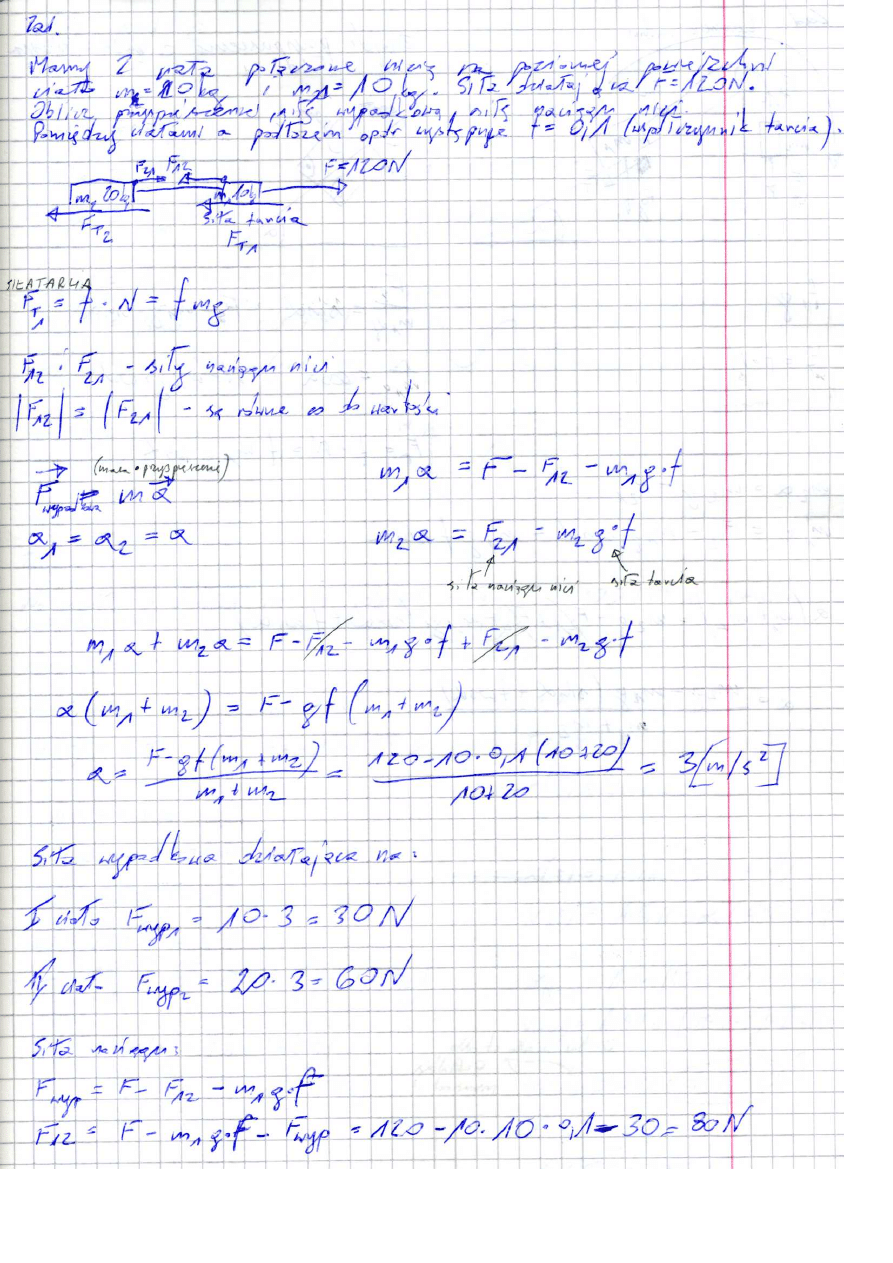 Zad.
Mamy 2 ciała połączone nicią na poziomej powierzchni
ciało m₂=20kg i m₁=10kg. Siła działająca F=120N.
Oblicz przyspieszenie, siłę wypadkową, siłę naciągu nici.
Pomiędzy ciałami a podłożem opór występuje f=0,1 (współczynnik tarcia).
F₂₁ F₁₂ F=120N
20kg 10kg
F_T₂ siła tarcia
F_T₁
SIŁA TARCIA
F_T₁ = f · N = f mg
F₁₂ i F₂₁ - siły naciągu nici
|F₁₂| = |F₂₁| - są równe co do wartości
(masa • przyspieszenie)
F wypadkowa = m a
m₁a = F - F₁₂ - m₁g·f
a₁ = a₂ = a
m₂a = F₂₁ - m₂g·f
siła naciągu nici siła tarcia
m₁a + m₂a = F - F₁₂ - m₁g·f + F₂₁ - m₂g·f
a(m₁+m₂) = F - gf(m₁+m₂)
a = F-gf(m₁+m₂) / m₁+m₂ = 120-10·0,1(10+20) / 10+20 = 3[m/s²]
Siła wypadkowa działająca na:
I ciało F wyp₁ = 10·3 = 30N
II ciało F wyp₂ = 20·3 = 60N
Siła naciągu:
F wyp = F - F₁₂ - m₁g·f
F₁₂ = F - m₁g·f - F wyp = 120 - 10·10·0,1 - 30 = 80N